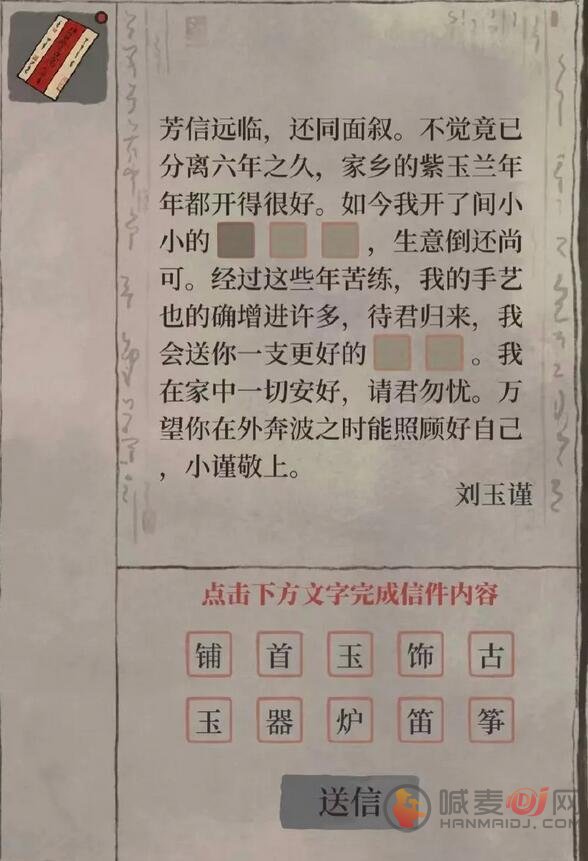 芳信远临，还同面叙。不觉竟已
分离六年之久，家乡的紫玉兰年
年都开得很好。如今我开了间小
小的，生意倒还尚
可。经过这些年苦练，我的手艺
也的确增进许多，待君归来，我
会送你一支更好的。我
在家中一切安好，请君勿忧。万
望你在外奔波之时能照顾好自己
，小谨敬上。
刘玉谨
点击下方文字完成信件内容
铺 首 玉 饰 古
玉 器 炉 笛 筝
送信
喊麦DJ网
HANMAIDJ.COM